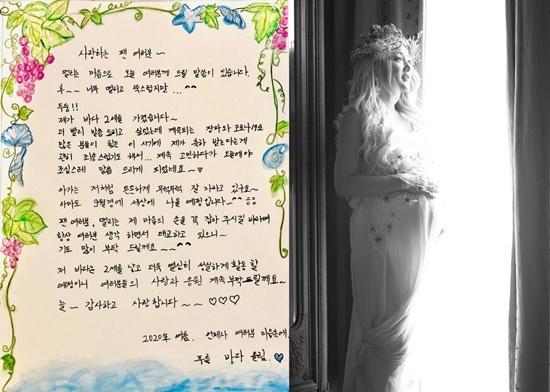 사랑하는 팬 여러분~
떨리는 마음으로 오늘 여러분께 드릴 말씀이 있습니다.
후~~ 너무 떨리고 쑥스럽지만 ...^^
두둥!!
제가 바다 2세를 가졌습니다~
더 빨리 말씀 드리고 싶었는데 계속되는 장마와 코로나19로
많은 분들이 힘든 이 시기에 제가 축하 받는다는게
괜히 조심스럽기도 해서... 계속 고민하다가 오늘에야
조심스레 말씀 드리게 되었네요~♡
아가는 저처럼 튼튼하게 무럭무럭 잘 자라고 있구요~
아마도 9월경에 세상에 나올 예정입니다~^^
팬 여러분, 떨리는 제 마음의 손을 꼭 잡아 주시길 바라며
항상 여러분 생각 하면서 태교하고 있으니~
기도 많이 부탁 드릴게요~~^^
저 바다는 2세를 낳고 더욱 열심히 성실하게 활동 할
예정이니 여러분들의 사랑과 응원 계속 부탁드릴께요~
늘~ 감사하고 사랑합니다~~♡♡♡
2020년 여름. 언제나 여러분 마음속에,
푸를 바다 올림.♡